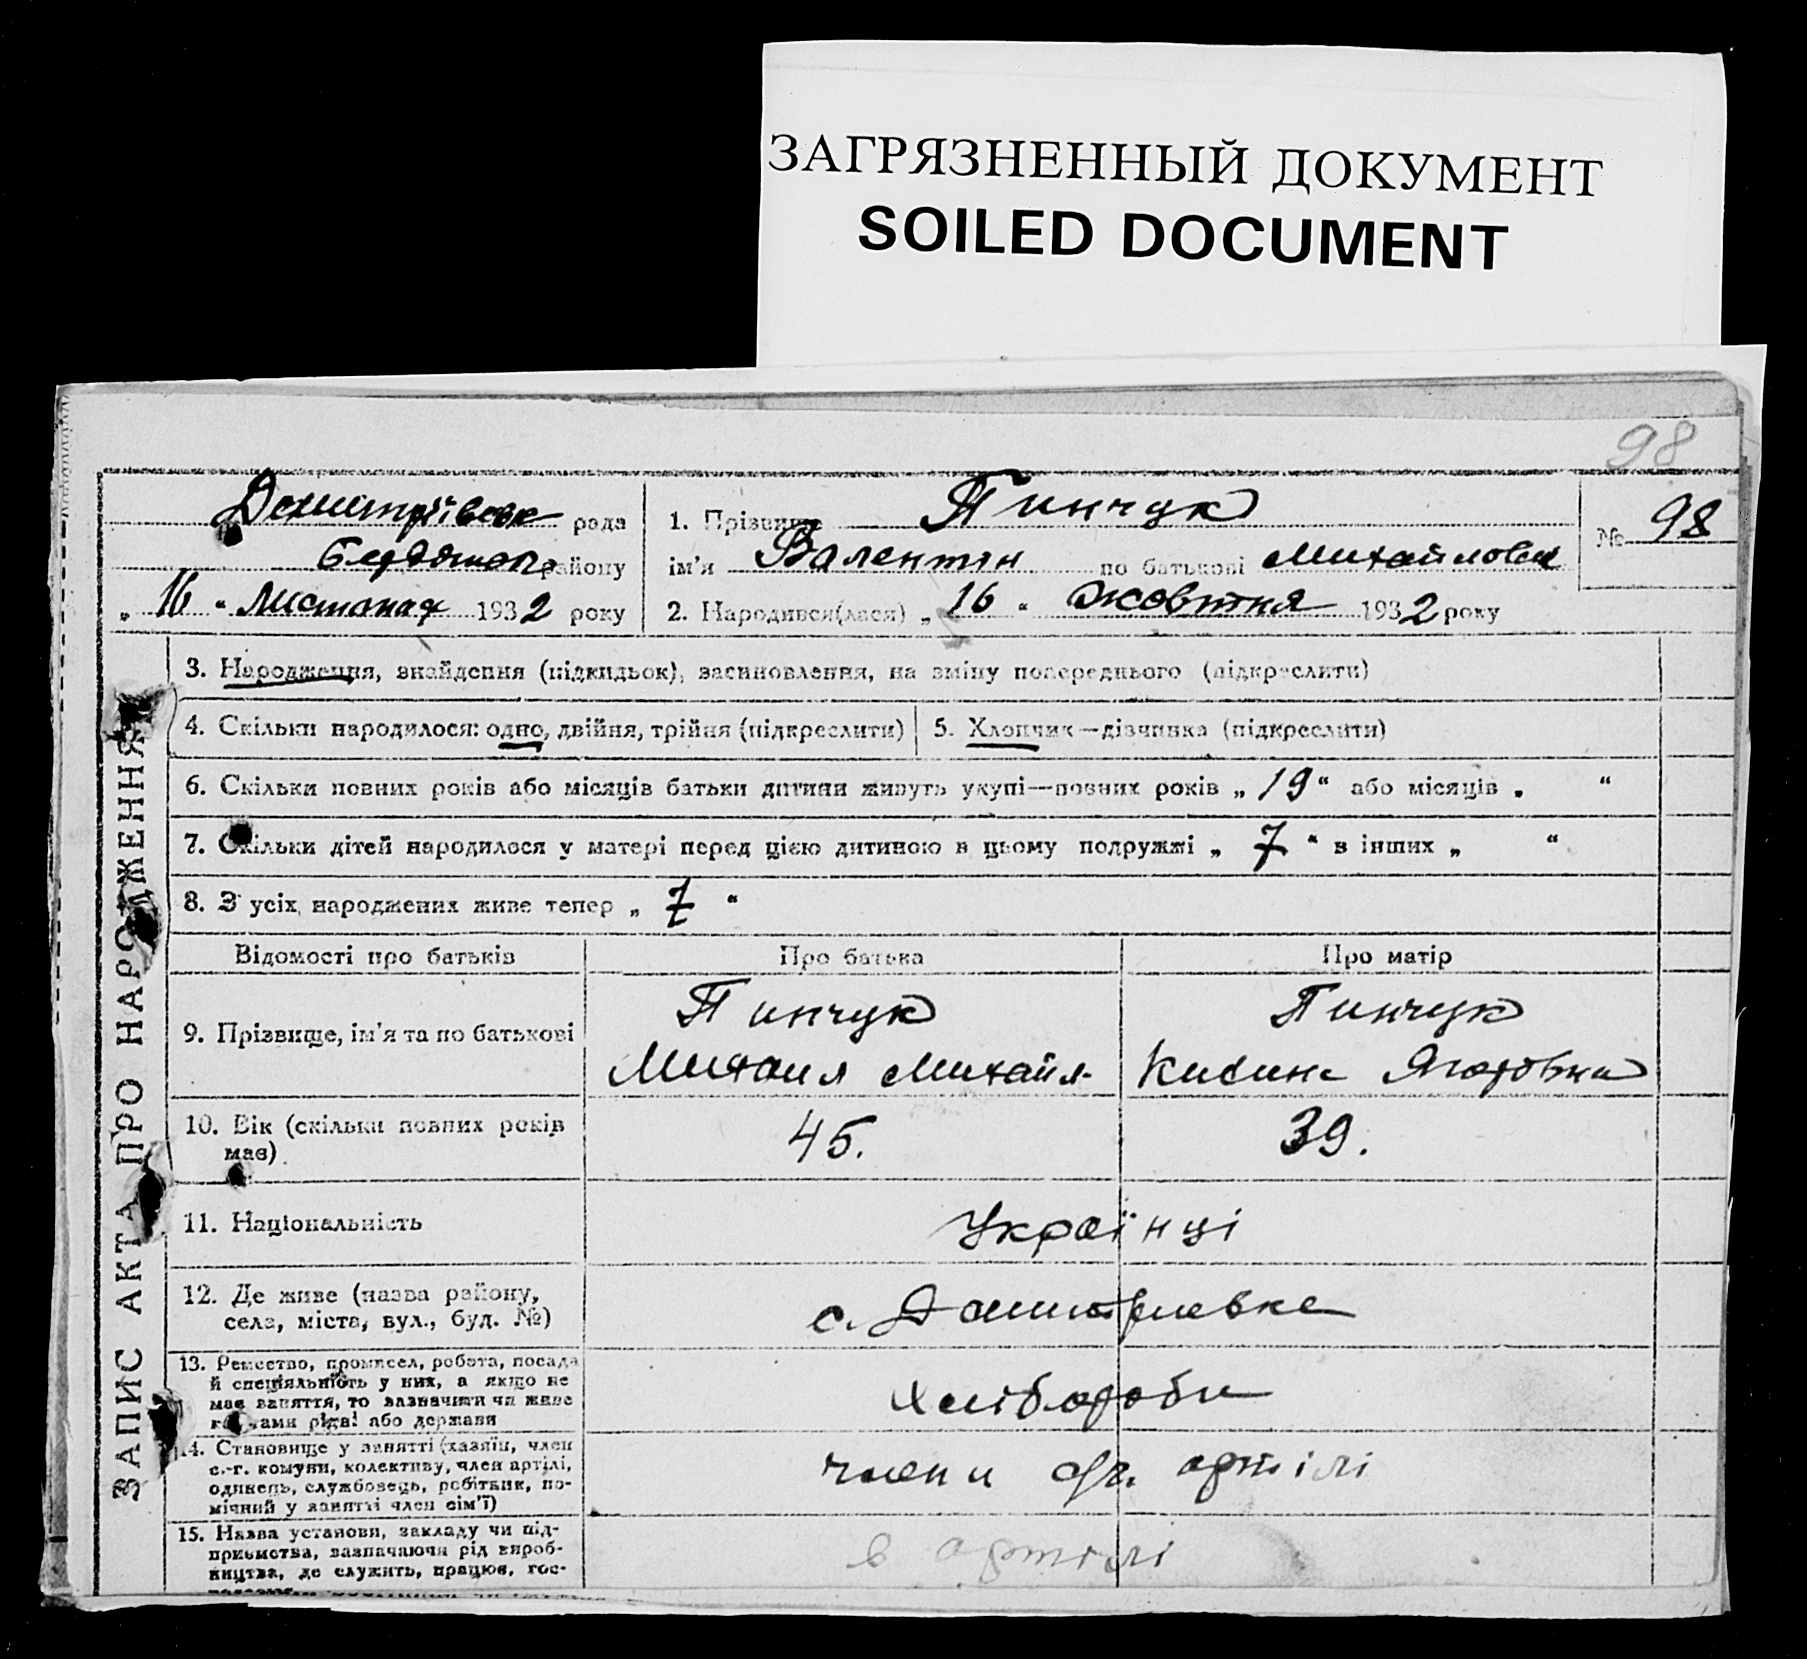 ЗАГРЯЗНЕННЫЙ ДОКУМЕНТ
SOILED DOCUMENT
98
Дмитрівськ рада
району
„16“ Листопад 1932 року
1. Прізвище Пинчук
ім'я Валентін по батькові Михайлович
2. Народився(лася) „16“ Жовтня 1932 року
№ 98
ЗАПИС АКТА ПРО НАРОДЖЕННЯ
3. Народження, знайдення (підкидьок), засиновлення, на зміну попереднього (підкреслити)
4. Скільки народилося: одно, двійня, трійня (підкреслити)
5. Хлопчик—дівчинка (підкреслити)
6. Скільки повних років або місяців батьки дитини живуть укупі—повних років „19“ або місяців „ “
7. Скільки дітей народилося у матері перед цією дитиною в цьому подружжі „7“ в інших „ “
8. З усіх народжених живе тепер „7“
Відомості про батьків
Про батька
Про матір
9. Прізвище, ім'я та по батькові
Пинчук
Михаил Михайл.
Пинчук
10. Вік (скільки повних років
має)
45.
39.
11. Національність
Українці
12. Де живе (назва району,
села, міста, вул., буд. №)
с. Дмитриевка
13. Ремество, промисел, робота, посада
й спеціяльність у них, а якщо не
має заняття, то зазначити чи живе
коштами рідні або держави
Хлібороби
14. Становище у занятті (хазяїн, член
с.-г. комуни, колективу, член артілі,
одинець, службовець, робітник, по-
мічний у занятті член сім'ї)
члени с/г. артілі
15. Назва установи, закладу чи під-
приємства, зазначаючи рід вироб-
ництва, де служить, працює, гос-
в артілі